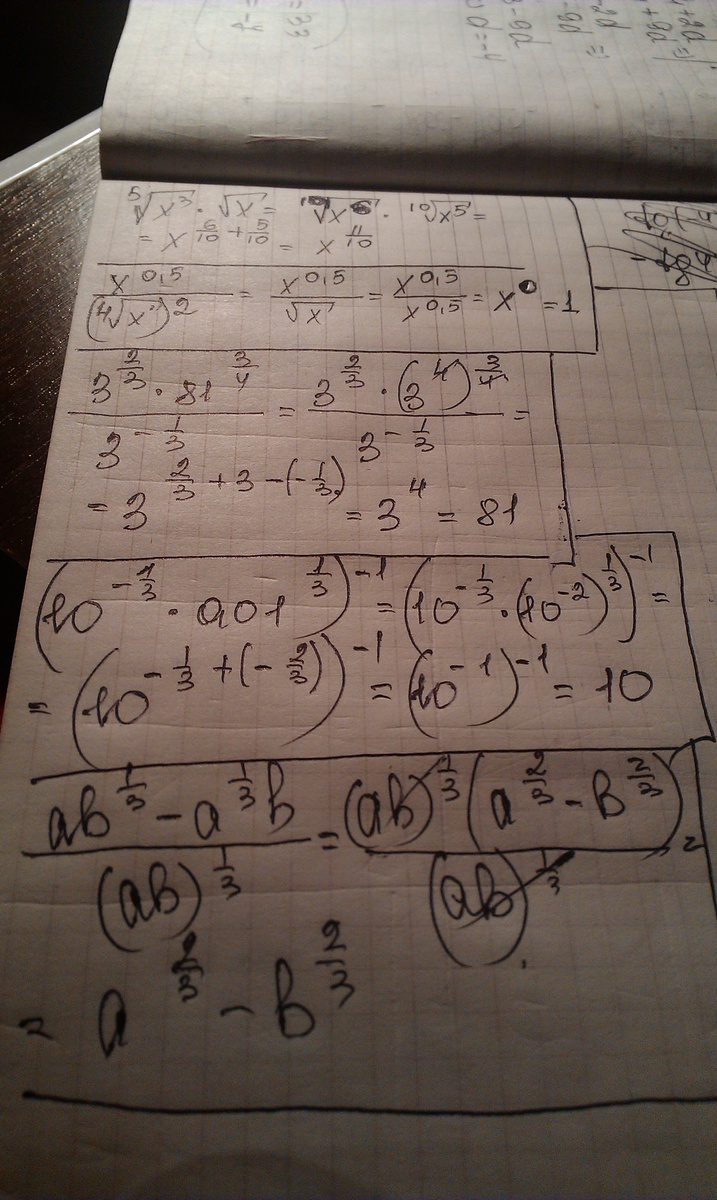 ⁵√x³ · √x = ¹⁰√x⁶ · ¹⁰√x⁵ =
= x^(6/10 + 5/10) = x^(11/10)
x^0,5 / (⁴√x)² = x^0,5 / √x = x^0,5 / x^0,5 = x^0 = 1
3^(2/3) · 81^(3/4) / 3^(-1/3) = 3^(2/3) · (3^4)^(3/4) / 3^(-1/3) =
= 3^(2/3 + 3 - (-1/3)) = 3^4 = 81
(10^(-1/3) · 0,01^(1/3))^-1 = (10^(-1/3) · (10^-2)^(1/3))^-1 =
= (10^(-1/3 + (-2/3)))^-1 = (10^-1)^-1 = 10
(ab^(1/3) - a^(1/3)b) / (ab)^(1/3) = (ab)^(1/3) (a^(2/3) - b^(2/3)) / (ab)^(1/3) =
= a^(2/3) - b^(2/3)